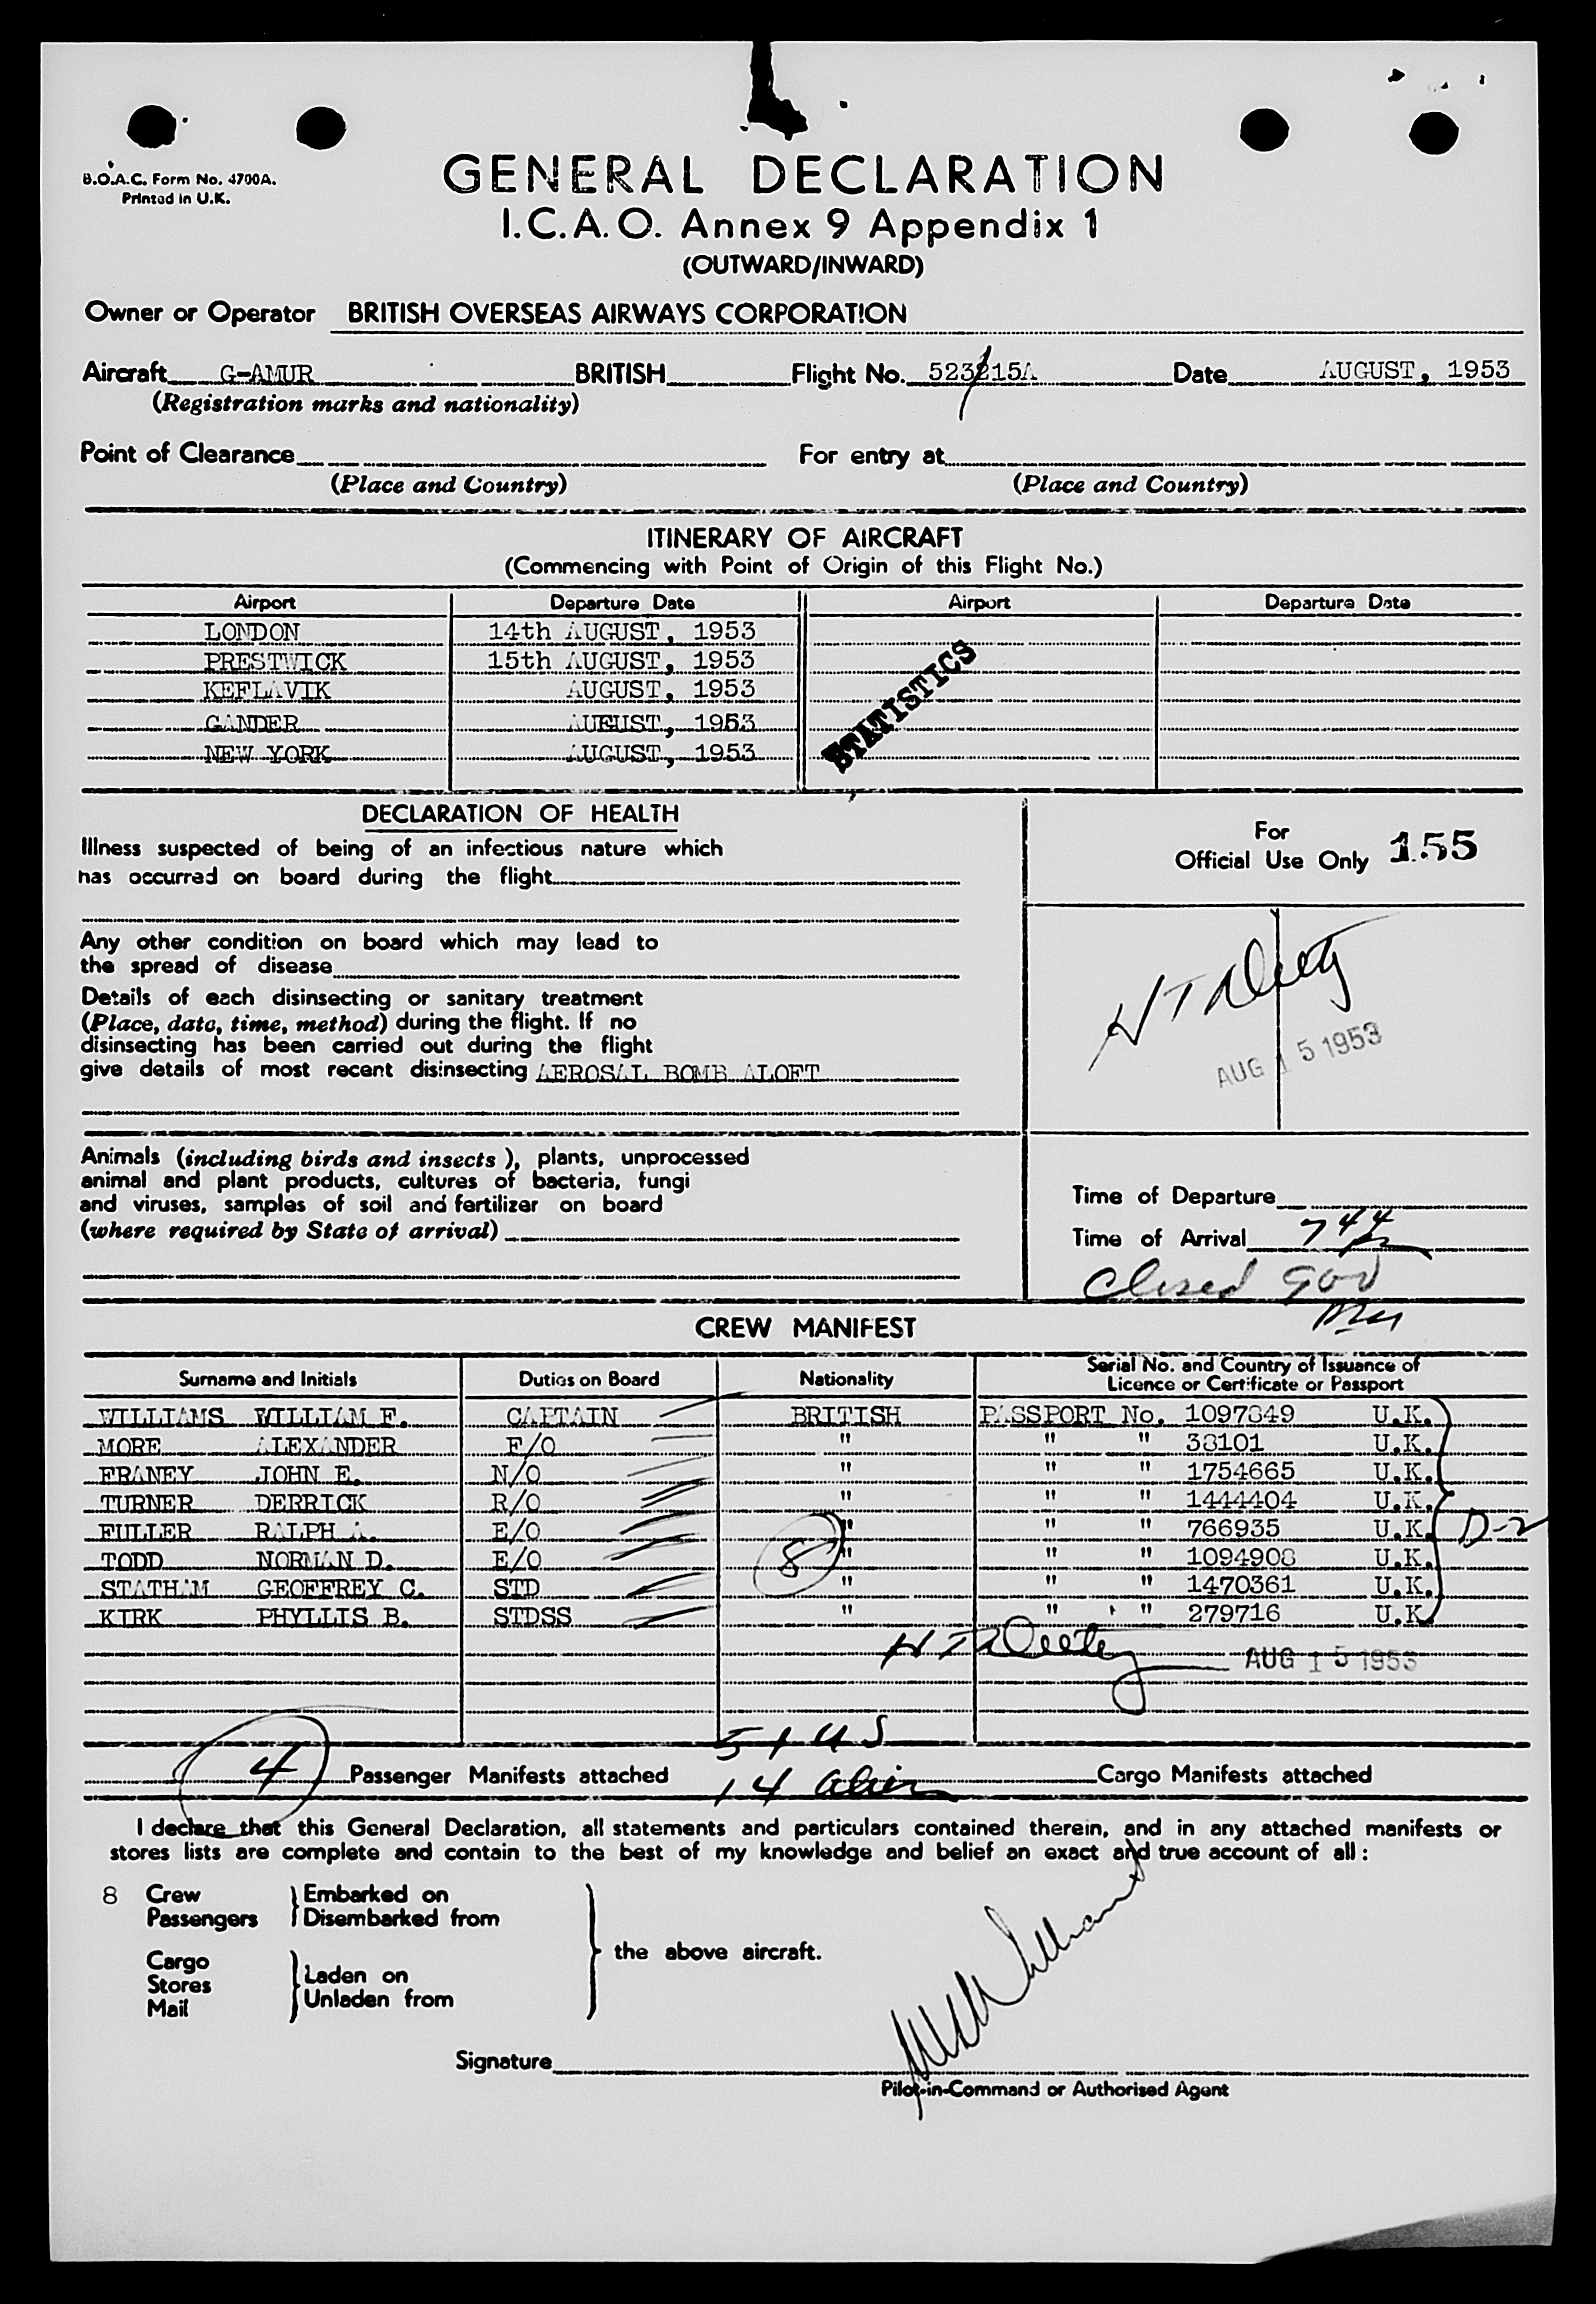 B.O.A.C. Form No. 4700A.
Printed in U.K.
GENERAL DECLARATION
I.C.A.O. Annex 9 Appendix 1
(OUTWARD/INWARD)
Owner or Operator BRITISH OVERSEAS AIRWAYS CORPORATION
Aircraft G-AMUR BRITISH Flight No. Date AUGUST, 1953
(Registration marks and nationality)
Point of Clearance For entry at
(Place and Country) (Place and Country)
ITINERARY OF AIRCRAFT
(Commencing with Point of Origin of this Flight No.)
Airport Departure Date Airport Departure Date
LONDON 14th AUGUST, 1953
PRESTWICK 15th AUGUST, 1953
KEFLAVIK AUGUST, 1953
GANDER AUGUST, 1953
NEW YORK AUGUST, 1953
STATISTICS
DECLARATION OF HEALTH
Illness suspected of being of an infectious nature which
has occurred on board during the flight
Any other condition on board which may lead to
the spread of disease
Details of each disinsecting or sanitary treatment
(Place, date, time, method) during the flight. If no
disinsecting has been carried out during the flight
give details of most recent disinsecting AEROSAL BOMB ALOFT
For
Official Use Only 155
AUG 15 1953
Animals (including birds and insects), plants, unprocessed
animal and plant products, cultures of bacteria, fungi
and viruses, samples of soil and fertilizer on board
(where required by State of arrival)
Time of Departure
Time of Arrival 744
Closed 900
CREW MANIFEST
Surname and Initials Duties on Board Nationality Serial No. and Country of Issuance of
Licence or Certificate or Passport
WILLIAMS WILLIAM F. CAPTAIN BRITISH PASSPORT No. 1097849 U.K.
MORE ALEXANDER F/O " " " 38101 U.K.
FRANEY JOHN E. N/O " " " 1754665 U.K.
TURNER DERRICK R/O " " " 1444404 U.K.
FULLER RALPH A. E/O " " " 766935 U.K. D-2
TODD NORMAN D. E/O 8 " " " 1094908 U.K.
STATHAM GEOFFREY C. STD " " " 1470361 U.K.
KIRK PHYLLIS B. STDSS " " " 279716 U.K.
AUG 15 1953
51 US
4 Passenger Manifests attached 14 alien Cargo Manifests attached
I declare that this General Declaration, all statements and particulars contained therein, and in any attached manifests or
stores lists are complete and contain to the best of my knowledge and belief an exact and true account of all:
8 Crew Embarked on
Passengers Disembarked from
the above aircraft.
Cargo
Stores Laden on
Mail Unladen from
Signature
Pilot-in-Command or Authorised Agent